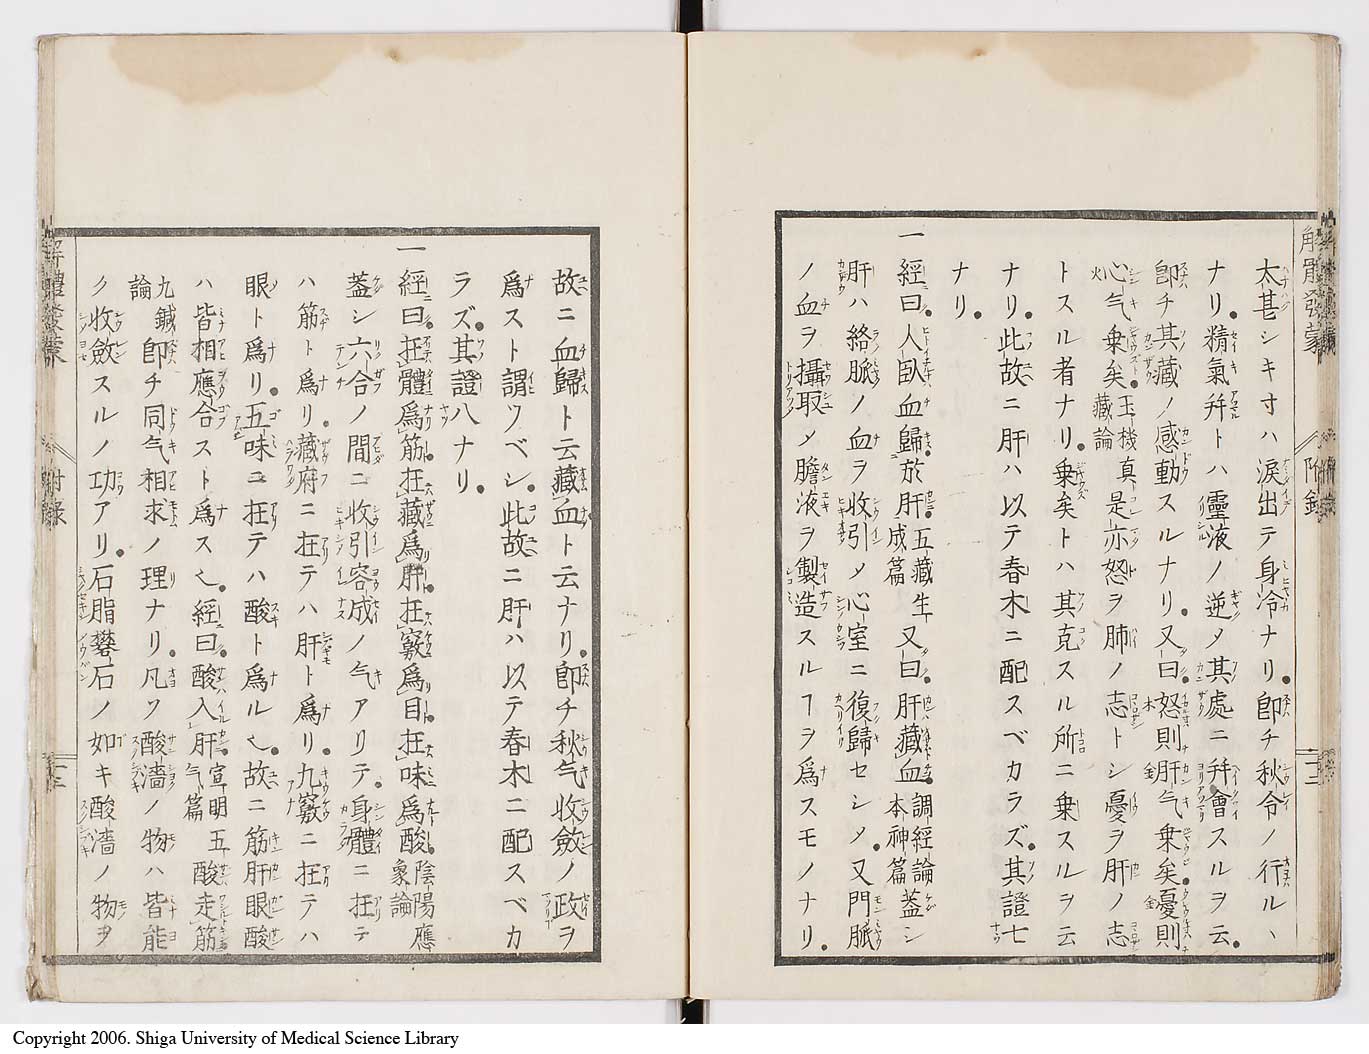 太甚シキ寸ハ淚出テ身冷ナリ。卽チ秋令ノ行ルヽ
ナリ。精氣幷トハ靈液ノ逆メ其處ニ幷會スルヲ云。
卽チ其藏ノ感動スルナリ。又曰。怒則肝气乗矣。憂則
心气乗矣。玉機真藏論 是亦怒ヲ肺ノ志トシ憂ヲ肝ノ志
トスル者ナリ。乗矣トハ其克スル所ニ乗スルヲ云
ナリ。此故ニ肝ハ以テ春木ニ配スベカラズ。其證七
ナリ。
一 經曰。人臥血歸於肝。五藏生成篇 又曰。肝藏血。調經論本神篇 蓋シ
肝ハ絡脈ノ血ヲ收引メ心室ニ復歸セシメ。又門脈
ノ血ヲ攝取メ膽液ヲ製造スルヿヲ爲スモノナリ。
解體發蒙
附錄
十二
故ニ血歸ト云藏血ト云ナリ。卽チ秋气收斂ノ政ヲ
爲スト謂ツベシ。此故ニ肝ハ以テ春木ニ配スベカ
ラズ。其證八ナリ。
一 經曰。在體爲筋。在藏爲肝。在竅爲目。在味爲酸。陰陽應象論
蓋シ六合ノ間ニ收引容成ノ气アリテ。身體ニ在テ
ハ筋ト爲リ。藏府ニ在テハ肝ト爲リ。九竅ニ在テハ
眼ト爲リ。五味ニ在テハ酸ト爲ル也。故ニ筋肝眼酸
ハ皆相應合スト爲ス也。經曰。酸入肝。宣明五气篇 酸走筋
九鍼論 卽チ同气相求ノ理ナリ。凡ソ酸濇ノ物ハ皆能
ク收斂スルノ功アリ。石脂礬石ノ如キ酸濇ノ物ヲ
解體發蒙
附錄
十三
Copyright 2006. Shiga University of Medical Science Library